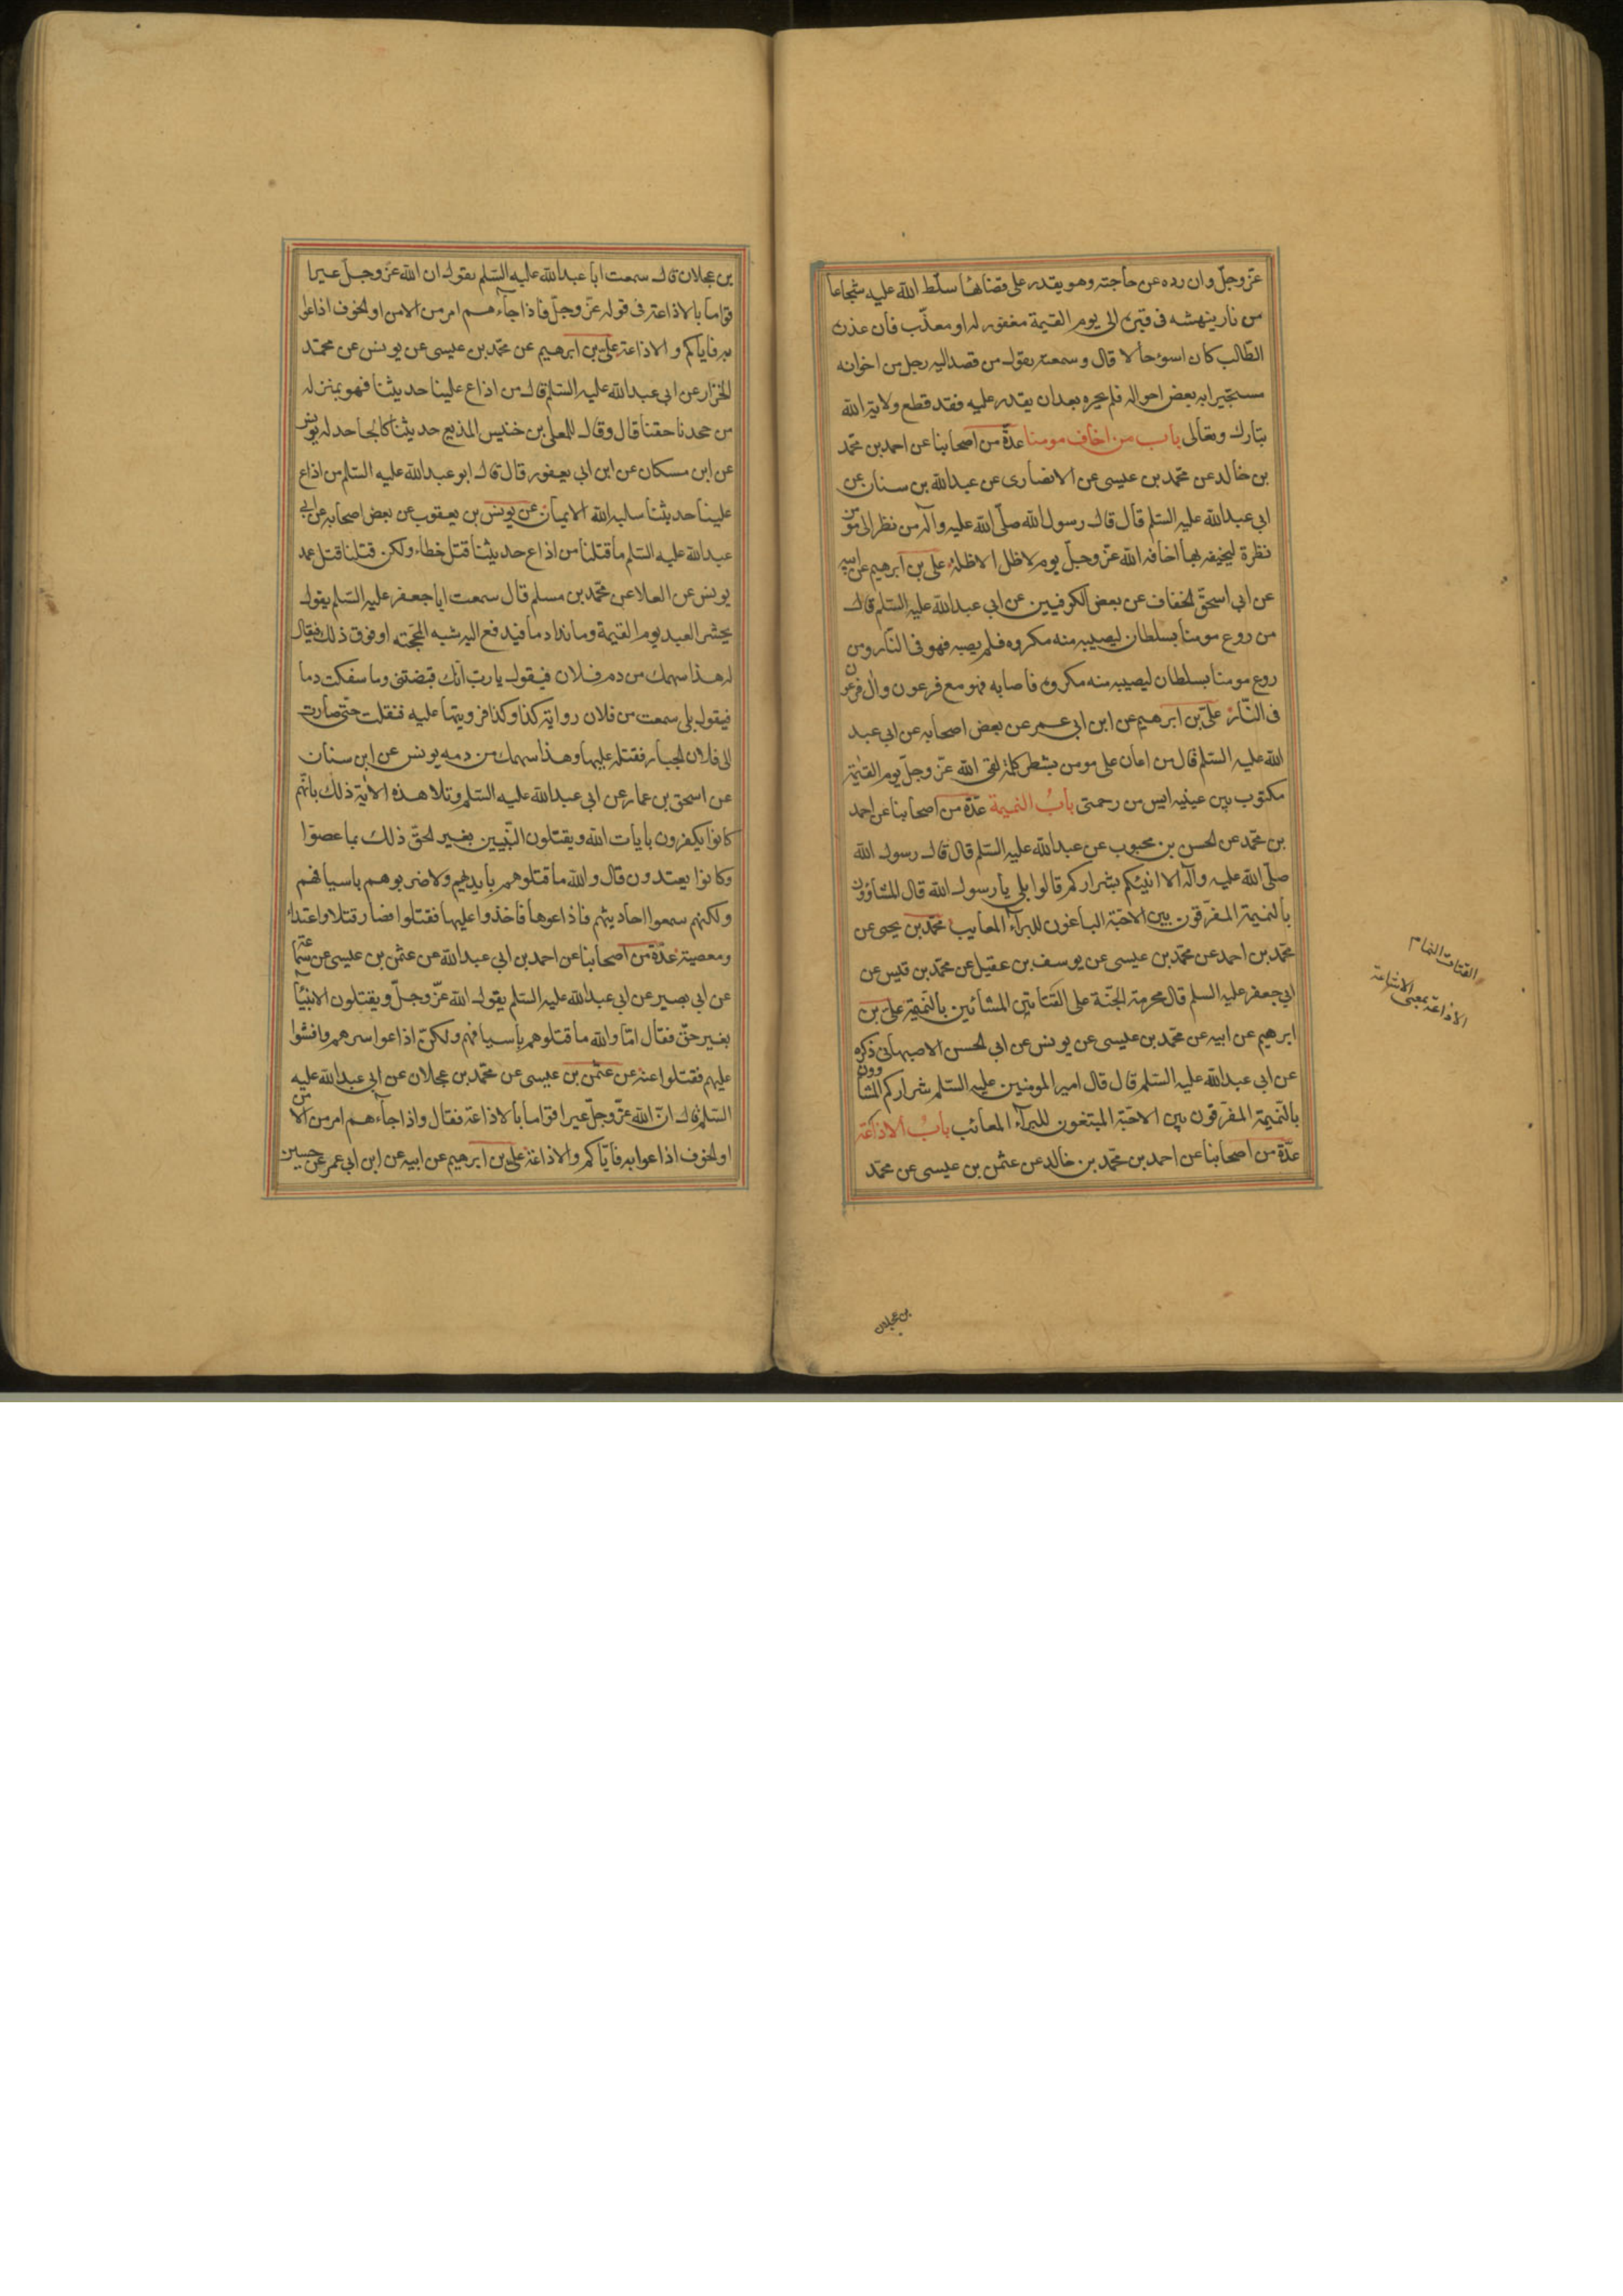 عزّ وجلّ وان رده عن حاجته وهو يقدر على قضائها سلّط الله عليه شجاعا
من نار ينهشه فى قبره الى يوم القيمة مغفور له او معذّب فان عذره
الطّالب كان اسوء حالا قال وسمعته يقول من قصد اليه رجل من اخوانه
مستجيرا به بعض احواله فلم يجره بعد ان يقدر عليه فقد قطع ولاية الله
تبارك وتعالى باب من اخاف مومنا عدّة من اصحابنا عن احمد بن محمّد
بن خالد عن محمّد بن عيسى عن الانصارى عن عبدالله بن سنان عن
ابى عبدالله عليه السّلم قال قال رسول الله صلّى الله عليه وآله من نظر الى مؤمن
نظرة ليخيفه بها اخافه الله عزّ وجلّ يوم لا ظلّ الا ظلّه علىّ بن ابرهيم عن ابيه
عن ابى اسحق الخفاف عن بعض الكوفيين عن ابى عبدالله عليه السّلم قال
من روع مومنا بسلطان ليصيبه منه مكروه فلم يصبه فهو فى النّار ومن
روع مومنا بسلطان ليصيبه منه مكروه فاصابه فهو مع فرعون وآل فرعون
فى النّار علىّ بن ابرهيم عن ابن ابى عمير عن بعض اصحابه عن ابى عبد
الله عليه السّلم قال من اعان على مومن بشطر كلمة لقى الله عزّ وجلّ يوم القيمة
مكتوب بين عينيه ايس من رحمتى باب النميمة عدّة من اصحابنا عن احمد
بن محمّد عن الحسن بن محبوب عن عبدالله عليه السّلم قال قال رسول الله
صلّى الله عليه وآله الا انبئكم بشراركم قالوا بلى يا رسول الله قال المشاؤون
بالنميمة المفرّقون بين الاحبّة الباغون للبرآء المعايب محمّد بن يحيى عن
محمّد بن احمد عن محمّد بن عيسى عن يوسف بن عقيل عن محمّد بن قيس عن
ابى جعفر عليه السلم قال محرمة الجنّة على القتاتين المشائين بالنّميمة علىّ بن
ابرهيم عن ابيه عن محمّد بن عيسى عن يونس عن ابى الحسن الاصبهانى ذكره
عن ابى عبدالله عليه السّلم قال قال امير المومنين عليه السّلم شراركم المشاؤون
بالنّميمة المفرّقون بين الاحبّة المبتغون للبرآء المعائب باب الاذاعة
عدّة من اصحابنا عن احمد بن محمّد بن خالد عن عثمن بن عيسى عن محمّد
القتات النمام
الاذاعة بمعنى الاشاعة
بن عجلان
بن عجلان قال سمعت ابا عبدالله عليه السّلم يقول ان الله عزّ وجلّ عيرا
قواما بالاذاعة فى قوله عزّ وجلّ فاذا جاءهم امر من الامن او الخوف اذاعوا
به فاياكم والاذاعة علىّ بن ابرهيم عن محمّد بن عيسى عن يونس عن محمّد
الخزاز عن ابى عبدالله عليه السّلم قال من اذاع علينا حديثنا فهو بمنزله
من جحدنا حقنا قال وقال للمعلى بن خنيس المذيع حديثنا كالجاحد له يونس
عن ابن مسكان عن ابن ابى يعفور قال قال ابو عبدالله عليه السّلم من اذاع
علينا حديثنا سلبه الله الايمان عن يونس بن يعقوب عن بعض اصحابه عن ابى
عبدالله عليه السّلم ما قتلنا من اذاع حديثنا قتل خطاء ولكن قتلنا قتل عمد
يونس عن العلا عن محمّد بن مسلم قال سمعت ابا جعفر عليه السّلم يقول
يحشر العبد يوم القيمة وما ندا دما فيدفع اليه شبه المحجمة او فوق ذلك فيقال
له هذا سهمك من دم فلان فيقول يا ربّ انّك قبضتنى وما سفكت دما
فيقول بلى سمعت من فلان رواية كذا وكذا فرويتها عليه فنقلت حتّى صارت
الى فلان الجبار فقتله عليها وهذا سهمك من دمه يونس عن ابن سنان
عن اسحق بن عمار عن ابى عبدالله عليه السّلم وتلا هذه الاية ذلك بانّهم
كانوا يكفرون بايات الله ويقتلون النّبيين بغير الحقّ ذلك بما عصوا
وكانوا يعتدون قال والله ما قتلوهم بايديهم ولا ضربوهم باسيافهم
ولكنهم سمعوا احاديثهم فاذاعوها فاخذوا عليها فقتلوا فصار قتلا واعتداء
ومعصية عدّة من اصحابنا عن احمد بن ابى عبدالله عن عثمن بن عيسى عن سماعة
عن ابى بصير عن ابى عبدالله عليه السّلم يقول الله عزّ وجلّ ويقتلون الانبياء
بغير حقّ فقال امّا والله ما قتلوهم باسيافهم ولكن اذاعوا سرهم وافشوا
عليهم فقتلوا عنه عن عثمن بن عيسى عن محمّد بن عجلان عن ابى عبدالله عليه
السّلم قال انّ الله عزّ وجلّ عير اقواما بالاذاعة فقال واذا جاءهم امر من الامن
او الخوف اذاعوا به فايّاكم والاذاعة علىّ بن ابرهيم عن ابيه عن ابن ابى عمير عن حسين